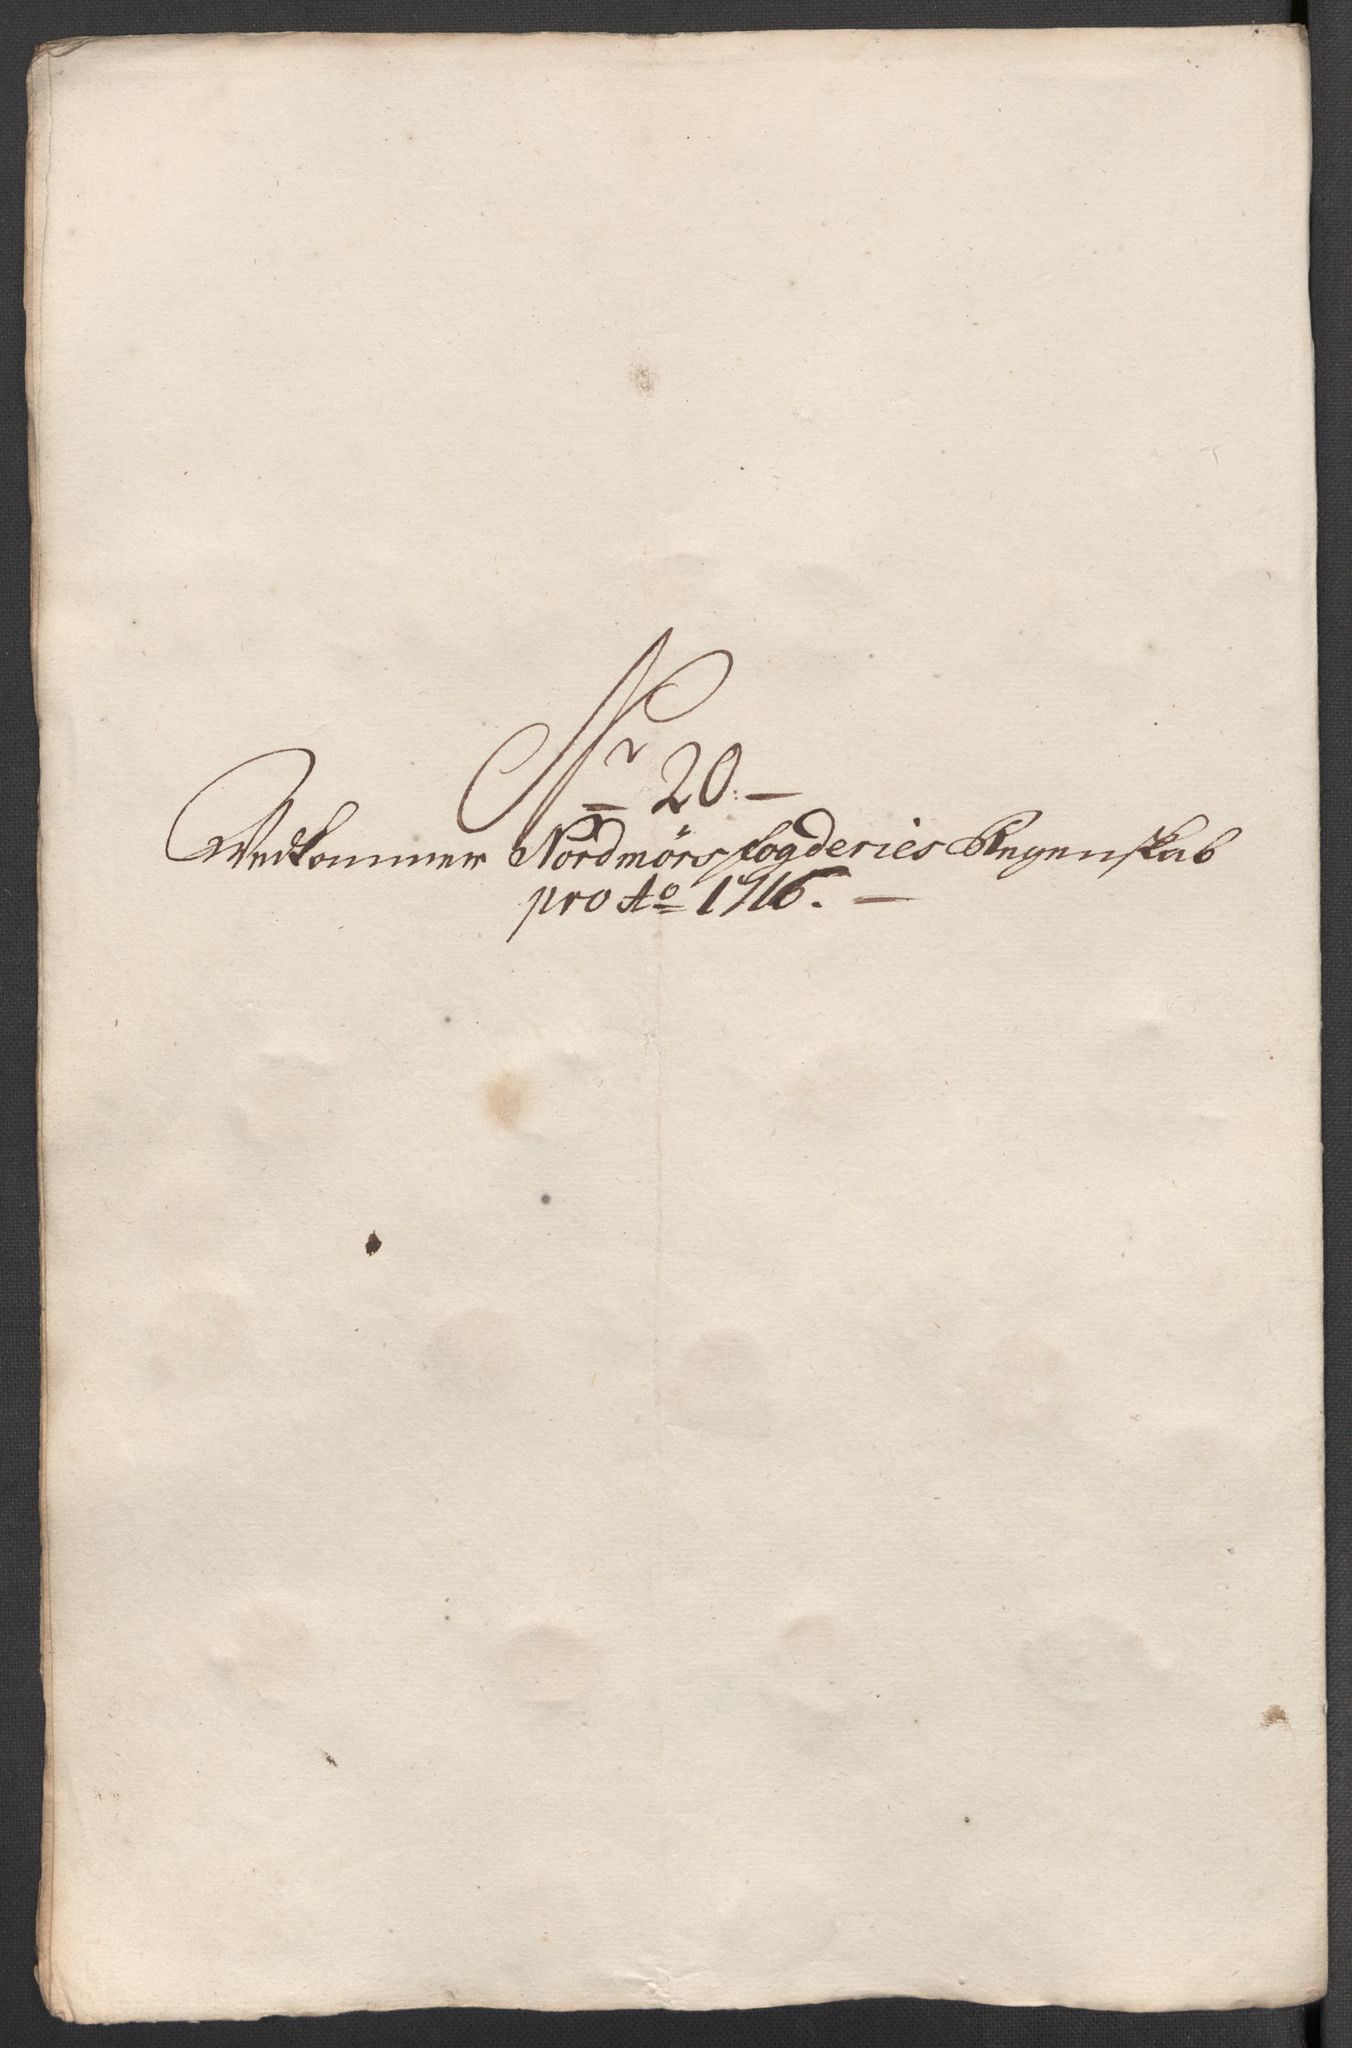 Nr 20.
Vedkommer Nordmörs fogderies Regenskab
pro Ao 1716.